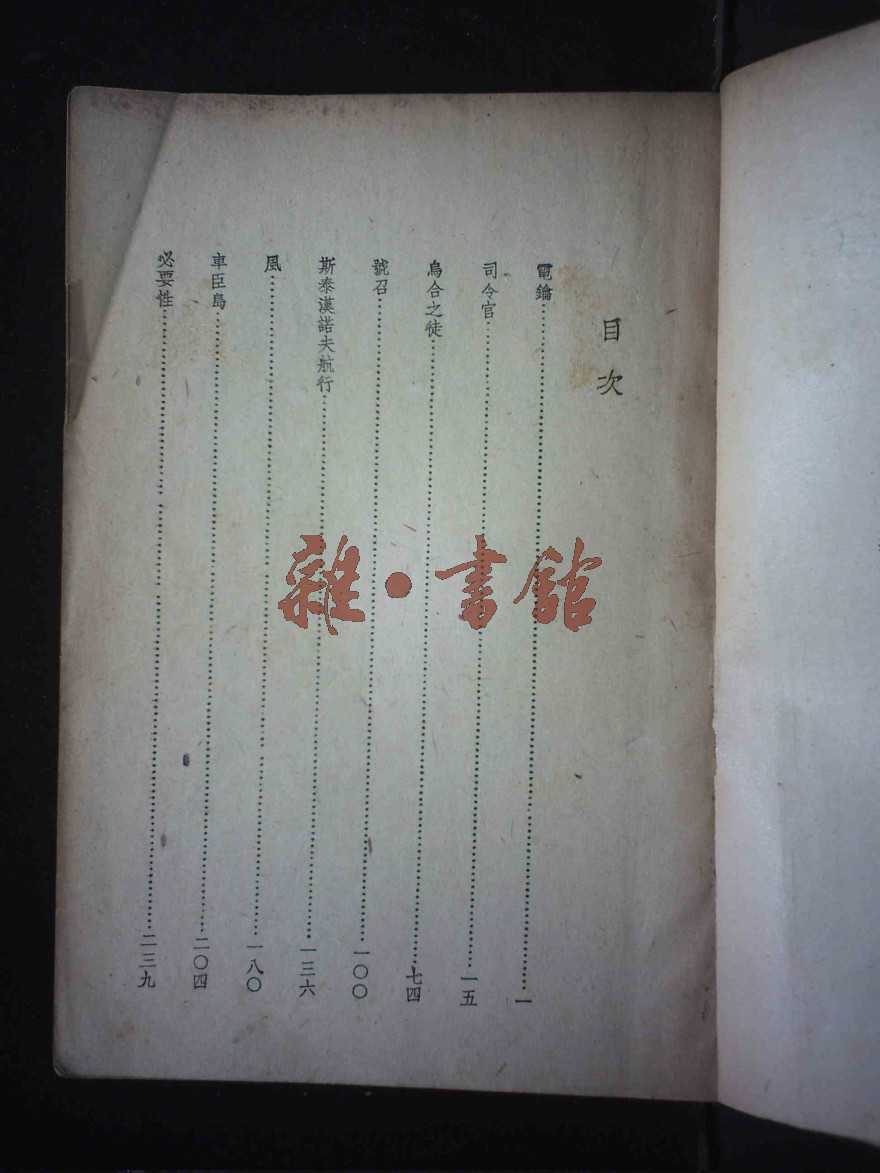 目次
電鑰……一
司令官……一五
烏合之徒……七四
號召……一〇〇
斯泰漢諾夫航行……一三六
風……一八〇
車臣島……二〇四
必要性……二三九
雜·書館